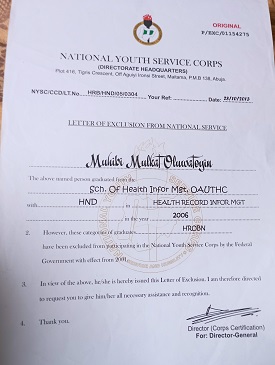 ORIGINAL
P/EXC/01154275
NATIONAL YOUTH SERVICE CORPS
(DIRECTORATE HEADQUARTERS)
Plot 416, Tigris Crescent, Off Aguiyi Ironsi Street, Maitama, P.M.B 138, Abuja.
NYSC/CCD/LT.No: HRB/HND/05/0304 Your Ref: Date: 23/10/2013
LETTER OF EXCLUSION FROM NATIONAL SERVICE
Muhibi Mulkat Oluwatoyin
The above named person graduated from the
Sch. Of Health Infor Mgt, OAUTHC
with HND in HEALTH RECORD INFOR. MGT
in the year 2006
2. However, these categories of graduates HRDBN
have been excluded from participating in the National Youth Service Corps by the Federal
Government with effect from 2001.
3. In view of the above, he/she is hereby issued this Letter of Exclusion. I am therefore directed
to request you to give him/her all necessary assistance and recognition.
4. Thank you.
Director (Corps Certification)
For: Director-General